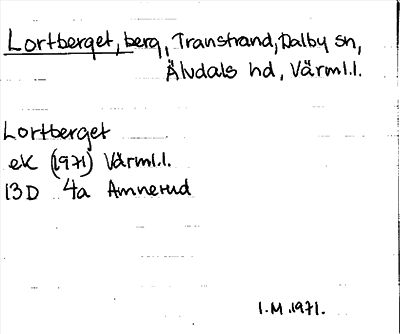 Lortberget, berg, Transtrand, Dalby sn,
Älvdals hd, Värml.l.
Lortberget
ek (1971) Värml.l.
13D 4a Amnerud
I.M.1971.